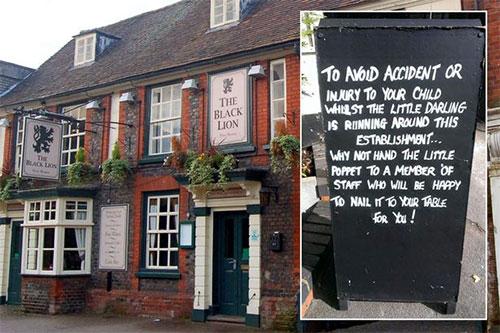 THE
BLACK
LION
THE
BLACK LION
TO AVOID ACCIDENT OR
INJURY TO YOUR CHILD
WHILST THE LITTLE DARLING
IS RUNNING AROUND THIS
ESTABLISHMENT...
WHY NOT HAND THE LITTLE
POPPET TO A MEMBER OF
STAFF WHO WILL BE HAPPY
TO NAIL IT TO YOUR TABLE
FOR YOU!